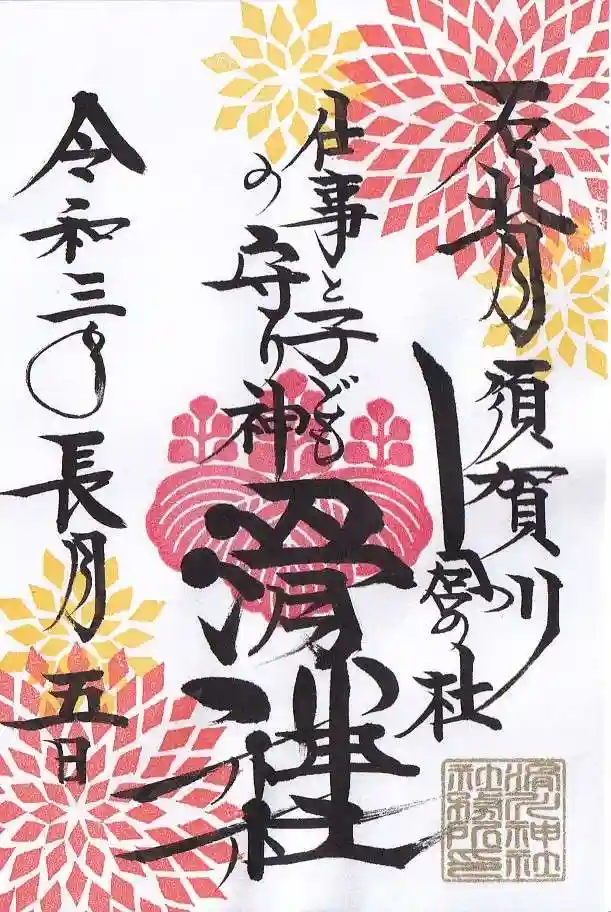 石背
須賀川
宮の杜
仕事と子ども
の守り神
滑川神社
令和三年長月五日
滑川神社
社務所之印